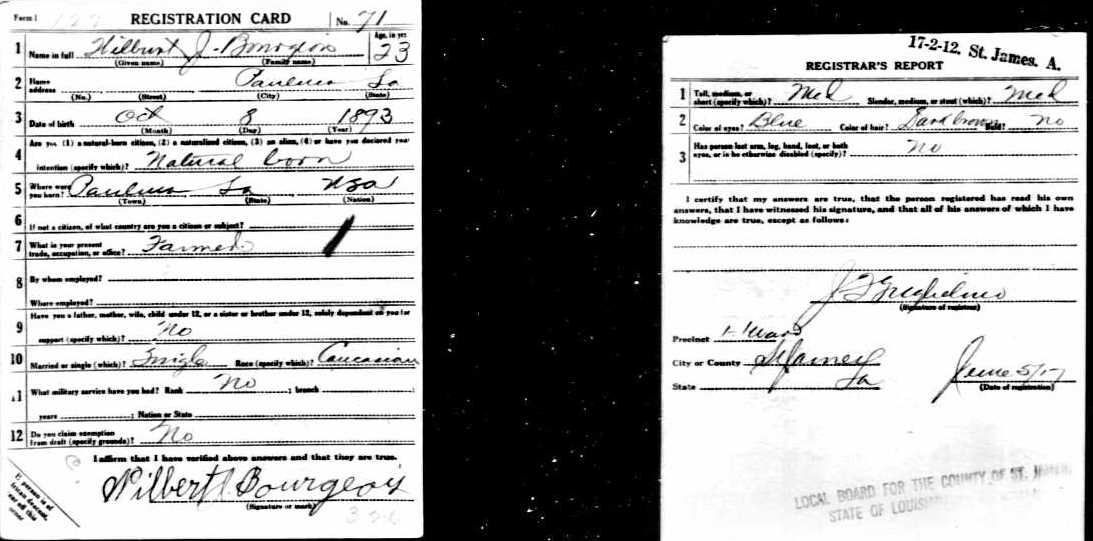 Form 1 REGISTRATION CARD No. 71
1 Name in full Wilbert J. Bourgeois Age, in yrs 23
(Given name) (Family name)
2 Home address Paulina La
(No.) (Street) (City) (State)
3 Date of birth Oct 8 1893
(Month) (Day) (Year)
4 Are you (1) a natural-born citizen, (2) a naturalized citizen, (3) an alien, (4) or have you declared your
intention (specify which)? Natural born
5 Where were you born? Paulina La USA
(Town) (State) (Nation)
6 If not a citizen, of what country are you a citizen or subject?
7 What is your present trade, occupation, or office? Farmer
8 By whom employed?
Where employed?
9 Have you a father, mother, wife, child under 12, or a sister or brother under 12, solely dependent on you for
support (specify which)? No
10 Married or single (which)? Single Race (specify which)? Caucasian
11 What military service have you had? Rank No ; branch
years ; Nation or State
12 Do you claim exemption from draft (specify grounds)? No
I affirm that I have verified above answers and that they are true.
Wilbert J. Bourgeois
(Signature or mark)
17-2-12. St. James. A.
REGISTRAR'S REPORT
1 Tall, medium, or short (specify which)? Med Slender, medium, or stout (which)? Med
2 Color of eyes? Blue Color of hair? Dark brown Bald? No
3 Has person lost arm, leg, hand, foot, or both
eyes, or is he otherwise disabled (specify)? No
I certify that my answers are true, that the person registered has read his own
answers, that I have witnessed his signature, and that all of his answers of which I have
knowledge are true, except as follows:
(Signature of registrar)
Precinct 1-1 Ward
City or County St James
State La June 5/17
(Date of registration)
LOCAL BOARD FOR THE COUNTY OF ST.
STATE OF